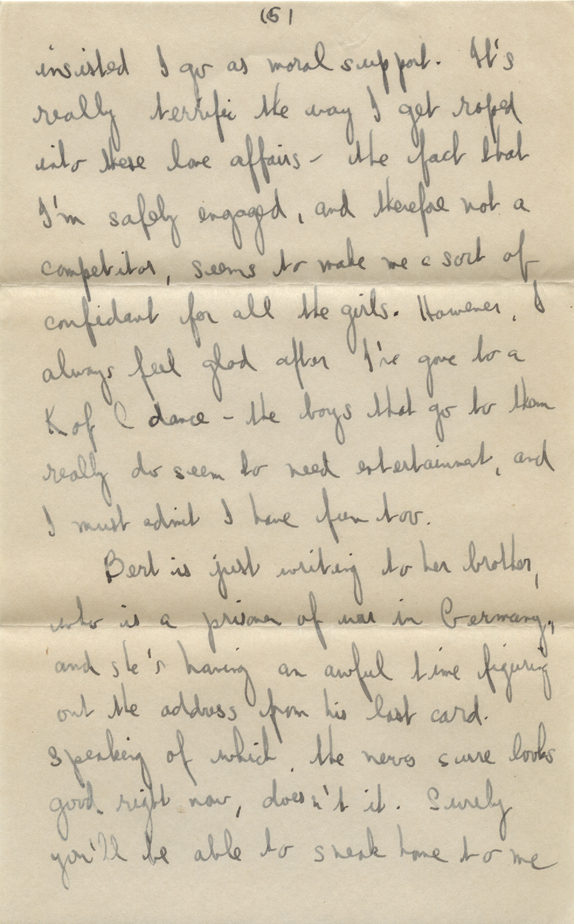 (5)
insisted I go as moral support. It's
really terrific the way I get roped
into these love affairs - the fact that
I'm safely engaged, and therefore not a
competitor, seems to make me a sort of
confidant for all the girls. However, I
always feel glad after I've gone to a
K of C dance - the boys that go to them
really do seem to need entertainment, and
I must admit I have fun too.
Bert is just writing to her brother,
who is a prisoner of war in Germany,
and she's having an awful time figuring
out the address from his last card.
Speaking of which, the news sure looks
good right now, doesn't it. Surely
you'll be able to sneak home to me